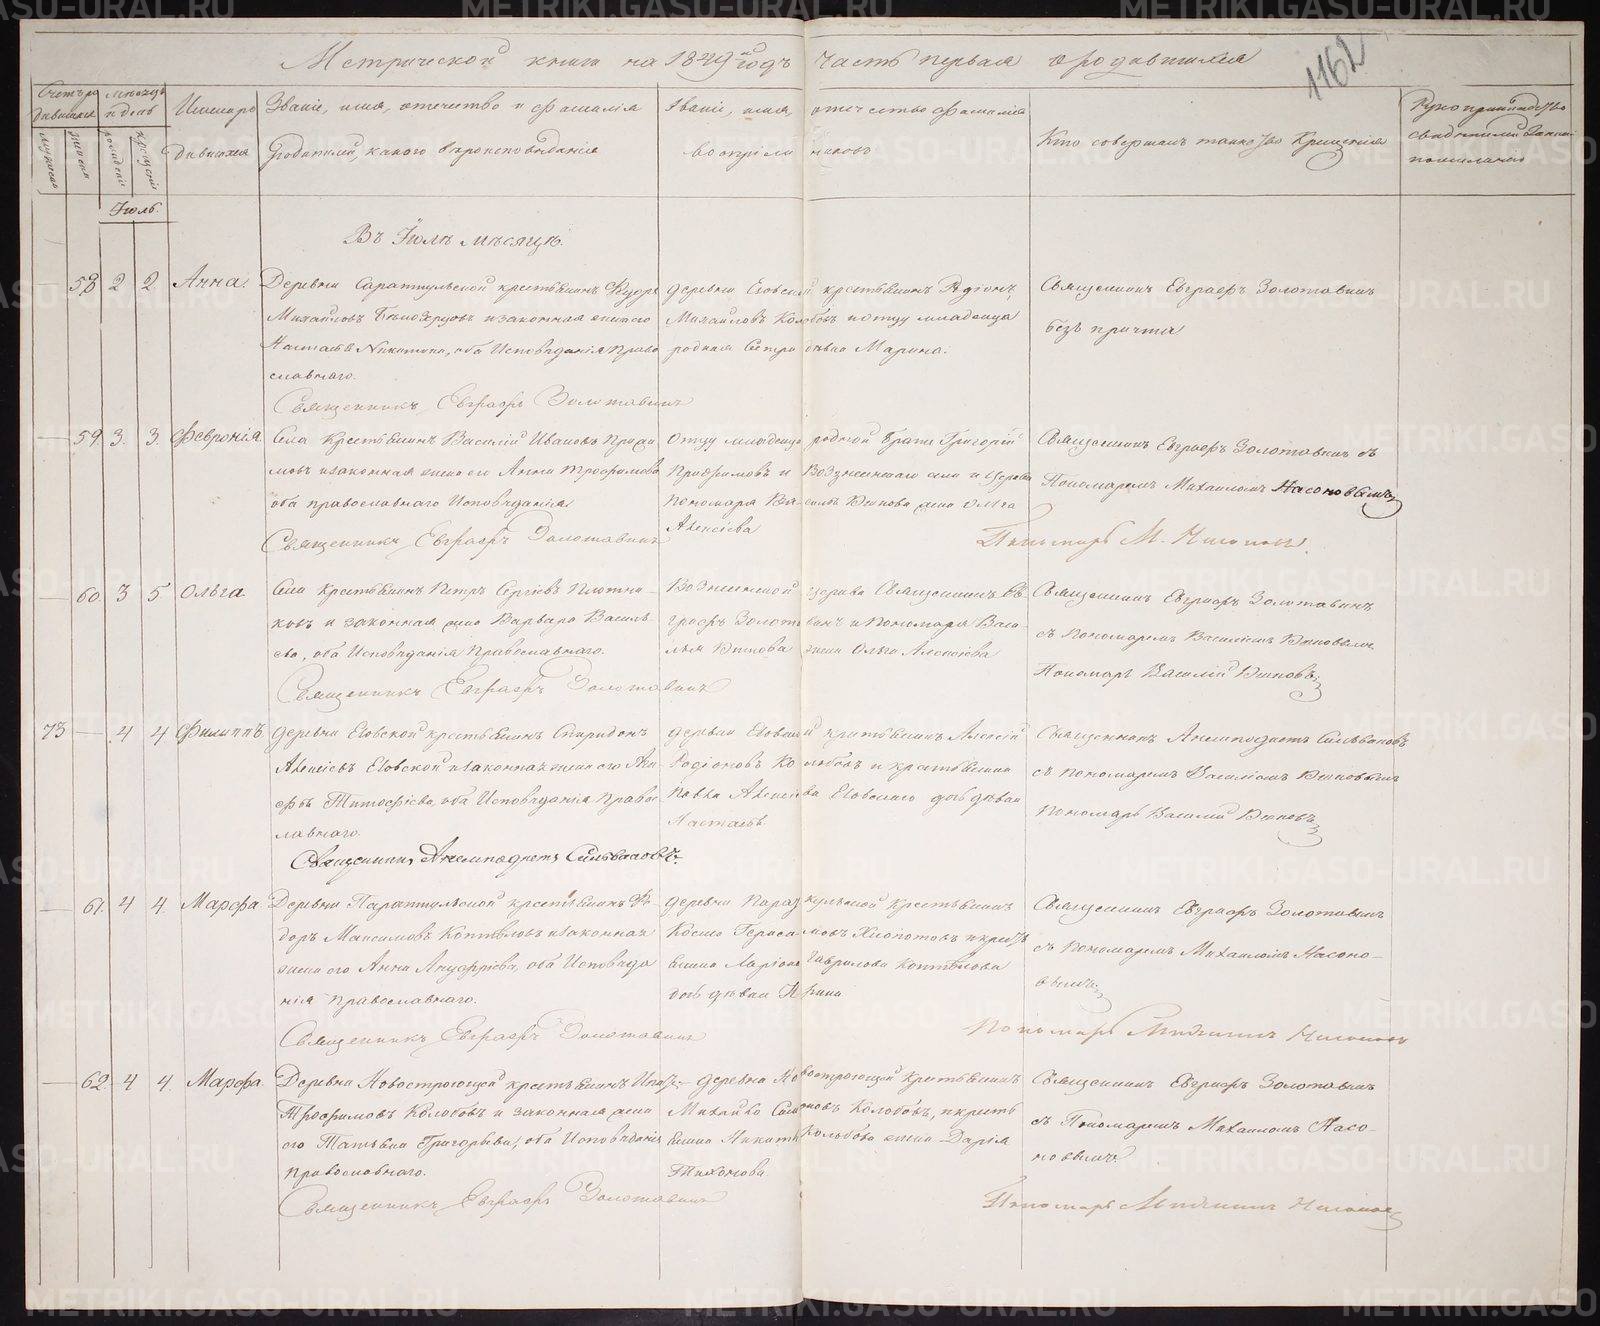 Метрической книги на 1849й годъ часть первая о родившихся
1162
Счетъ родившихся
Мѣсяцъ и день
Имена родившихся
Званіе, имя, отечество и фамилія
Родителей, какого вѣроисповѣданія
Званіе, имя, отечество фамилія
воспріемниковъ
Кто совершалъ таинство Крещенія
Рукоприкладство
свидѣтелей записи
по желанію
мужеска
женска
рожденія
крещенія
Іюль.
Въ Іюлѣ мѣсяцѣ.
— 58 2 2 Анна.
Деревни крестьянинъ Ѳедоръ
Михайловъ и законная жена его
Настасья Никитина, оба Исповѣданія Право
славнаго.
Священникъ Евграфъ Золотавинъ
деревни Еговской крестьянинъ Родіонъ
Михайловъ Колобовъ и отцу младенца
родная Сестра дѣвка Марина.
Священникъ Евграфъ Золотавинъ
безъ причта
— 59 3. 3. Февронія.
Села Крестьянинъ Василій Ивановъ
и законная жена его Анна Трофимова
оба православнаго Исповѣданія
Священникъ Евграфъ Золотавинъ
Отцу младенца родной братъ Григорій
и Вознесенской церкви
Пономаря жена Ольга
Алексіева
Священникъ Евграфъ Золотавинъ съ
Пономаремъ Михаиломъ Насоновымъ
Пономарь М. Насоновъ.
— 60. 3 5 Ольга
Села Крестьянинъ Петръ Сергіевъ Плотни-
ковъ и законная жена Варвара Василь
ева, оба Исповѣданія Православнаго.
Священникъ Евграфъ Золотавинъ
Вознесенской церкви Священникъ Ев-
графъ Золотавинъ и Пономаря Васи-
лья жена Ольга Алексіева
Священникъ Евграфъ Золотавинъ
съ Пономаремъ Василіемъ
Пономарь Василій
73 — 4 4 Филиппъ
Деревни Еговской крестьянинъ Спиридонъ
Алексіевъ Еговской и законная жена его Ага-
фья Тимофіева, оба Исповѣданія Правос-
лавнаго.
Священникъ Анемподистъ Сильвановъ.
деревни Еговской крестьянинъ Алексій
Родіоновъ Колобовъ и крестьянина
Павла Алексіева Еговскаго дочь дѣвка
Настасья
Священникъ Анемподистъ Сильвановъ
съ пономаремъ Василіемъ
Пономарь Василій
— 61. 4 4. Марфа.
Деревни крестьянинъ Ѳе-
доръ Максимовъ Коптяловъ и законная
жена его Анна Ануфріева, оба Исповѣда
нія православнаго.
Священникъ Евграфъ Золотавинъ
деревни крестьянинъ
Косма Герасимовъ Хлопотовъ и кресть
янина Ларіона Гаврилова Коптялова
дочь дѣвка Ирина
Священникъ Евграфъ Золотавинъ
съ Пономаремъ Михаиломъ Насоно-
вымъ.
Пономарь Михаилъ Насоновъ
— 62 4 4. Марфа.
Деревни Новостроющей крестьянинъ
Трофимовъ Колобовъ и законная жена
его Татьяна Григорьева, оба Исповѣданія
Православнаго.
Священникъ Евграфъ Золотавинъ
деревни Новостроющей Крестьянинъ
Михайло Колобовъ, и кресть
янина Никиты Колобова жена Дарія
Тихонова
Священникъ Евграфъ Золотавинъ
съ Пономаремъ Михаиломъ Насо-
новымъ.
Пономарь Михаилъ Насоновъ
METRIKI.GASO-URAL.RU